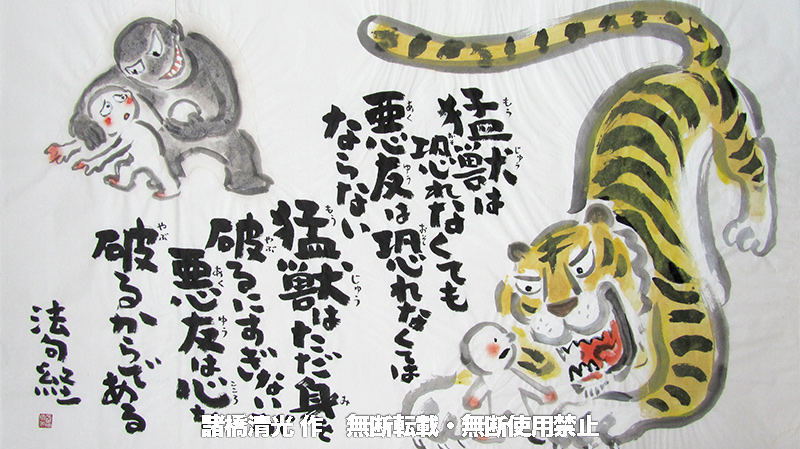 猛獣は
恐れなくても
悪友は恐れなくては
ならない
猛獣はただ身を
破るにすぎない
悪友は心を
破るからである
法句経
諸橋清光 作　無断転載・無断使用禁止